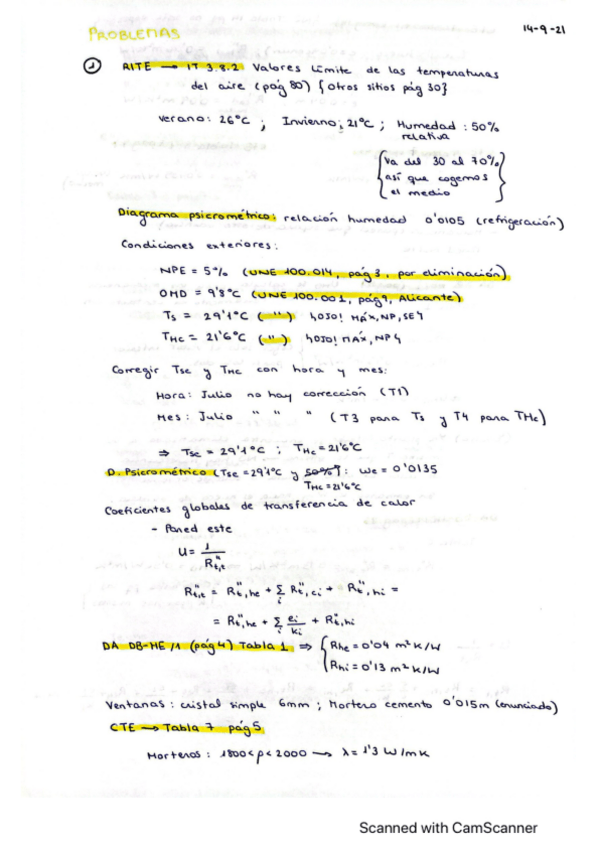 14-9-21
PROBLEMAS
1 RITE → IT 3.8.2 Valores límite de las temperaturas
del aire (pág 80) {otros sitios pág 30}
Verano: 26°C ; Invierno: 21°C ; Humedad relativa : 50%
{Va del 30 al 70%
así que cogemos
el medio}
Diagrama psicrométrico: relación humedad 0'0105 (refrigeración)
Condiciones exteriores:
NPE = 5% (UNE 100.014, pág 3, por eliminación)
OMD = 9'8°C (UNE 100.001, pág 9, Alicante)
Ts = 29'1°C (") ¡OJO! MÁX, NP, SE!
THC = 21'6°C (") ¡OJO! MÁX, NP!
Corregir Tse y THC con hora y mes:
Hora: Julio no hay corrección (T1)
Mes: Julio " " " (T3 para Ts y T4 para THC)
⇒ Tse = 29'1°C ; THC = 21'6°C
D. Psicrométrico (Tse = 29'1°C y 50%): We = 0'0135
THC = 21'6°C
Coeficientes globales de transferencia de calor
- Pared este
U = 1 / R"t,t
R"t,t = R"t,he + Σi R"t,ci + R"t,hi =
= R"t,he + Σi ei/ki + R"t,hi
DA DB-HE/1 (pág 4) Tabla 1 ⇒ { Rhe = 0'04 m²K/W
Rhi = 0'13 m²K/W
Ventanas: cristal simple 6mm ; Mortero cemento 0'015m (enunciado)
CTE → Tabla 7 pág 5
Morteros : 1800<ρ<2000 → λ = 1'3 W/mK
Scanned with CamScanner